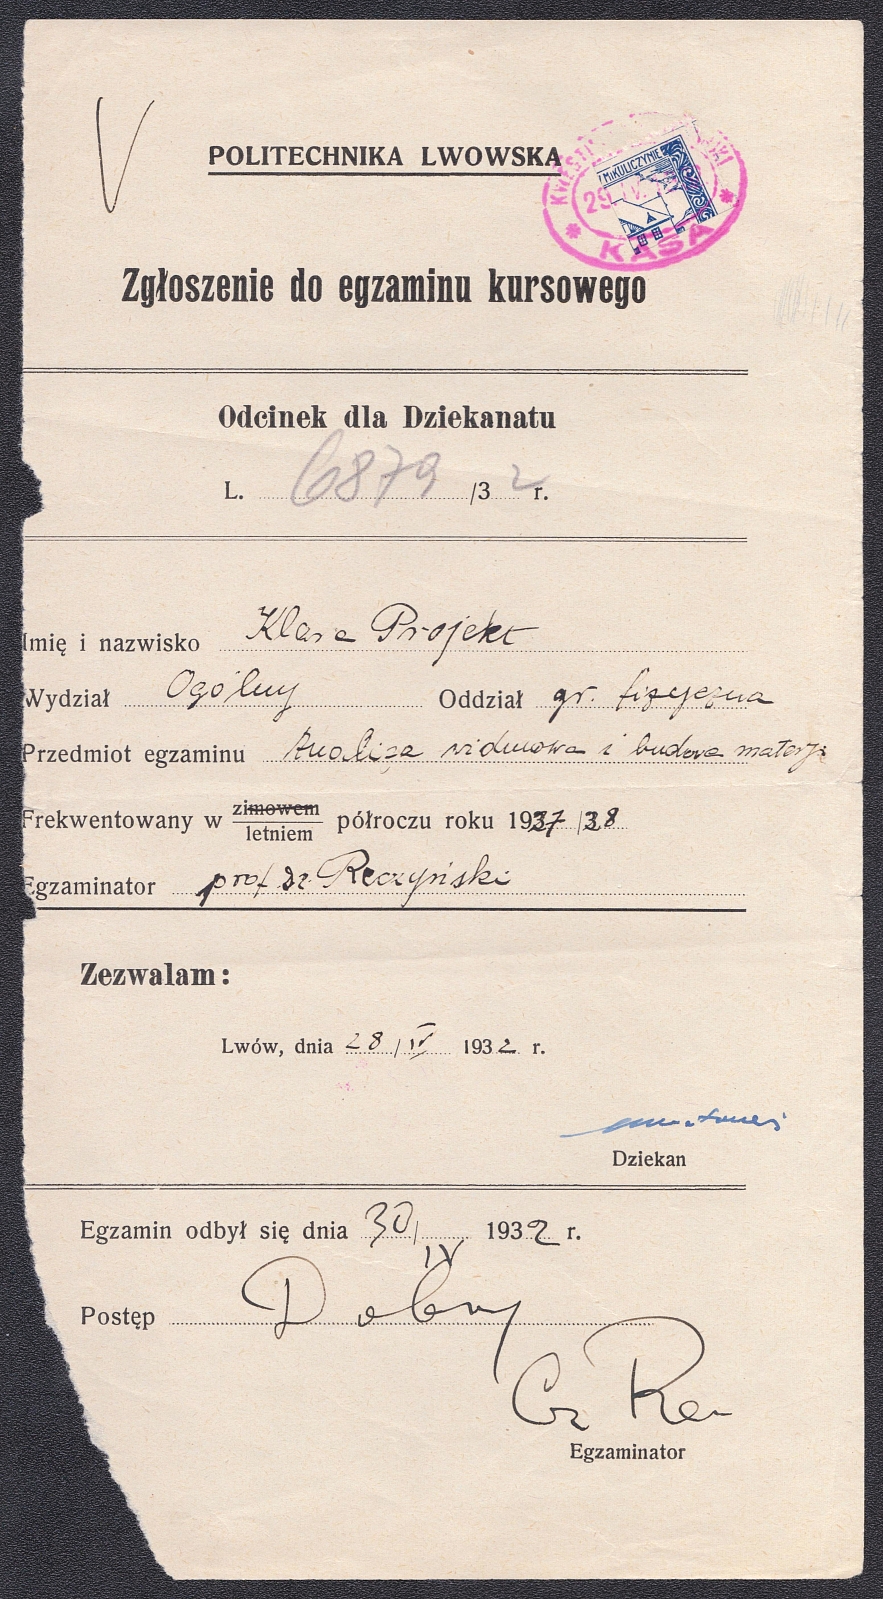 V
POLITECHNIKA LWOWSKA
W MIKULICZYNIE
29. IV.
* KASA *
Zgłoszenie do egzaminu kursowego
Odcinek dla Dziekanatu
L. 6879 /32 r.
Imię i nazwisko Klara Projekt
Wydział Ogólny Oddział gr. fizyczna
Przedmiot egzaminu Analiza widmowa i budowa materji
Frekwentowany w zimowem
letniem półroczu roku 1927/28
Egzaminator prof dr. Reczyński
Zezwalam:
Lwów, dnia 28/IV 1932 r.
Dziekan
Egzamin odbył się dnia 30/IV 1932 r.
Postęp Dobry
Cz Re
Egzaminator